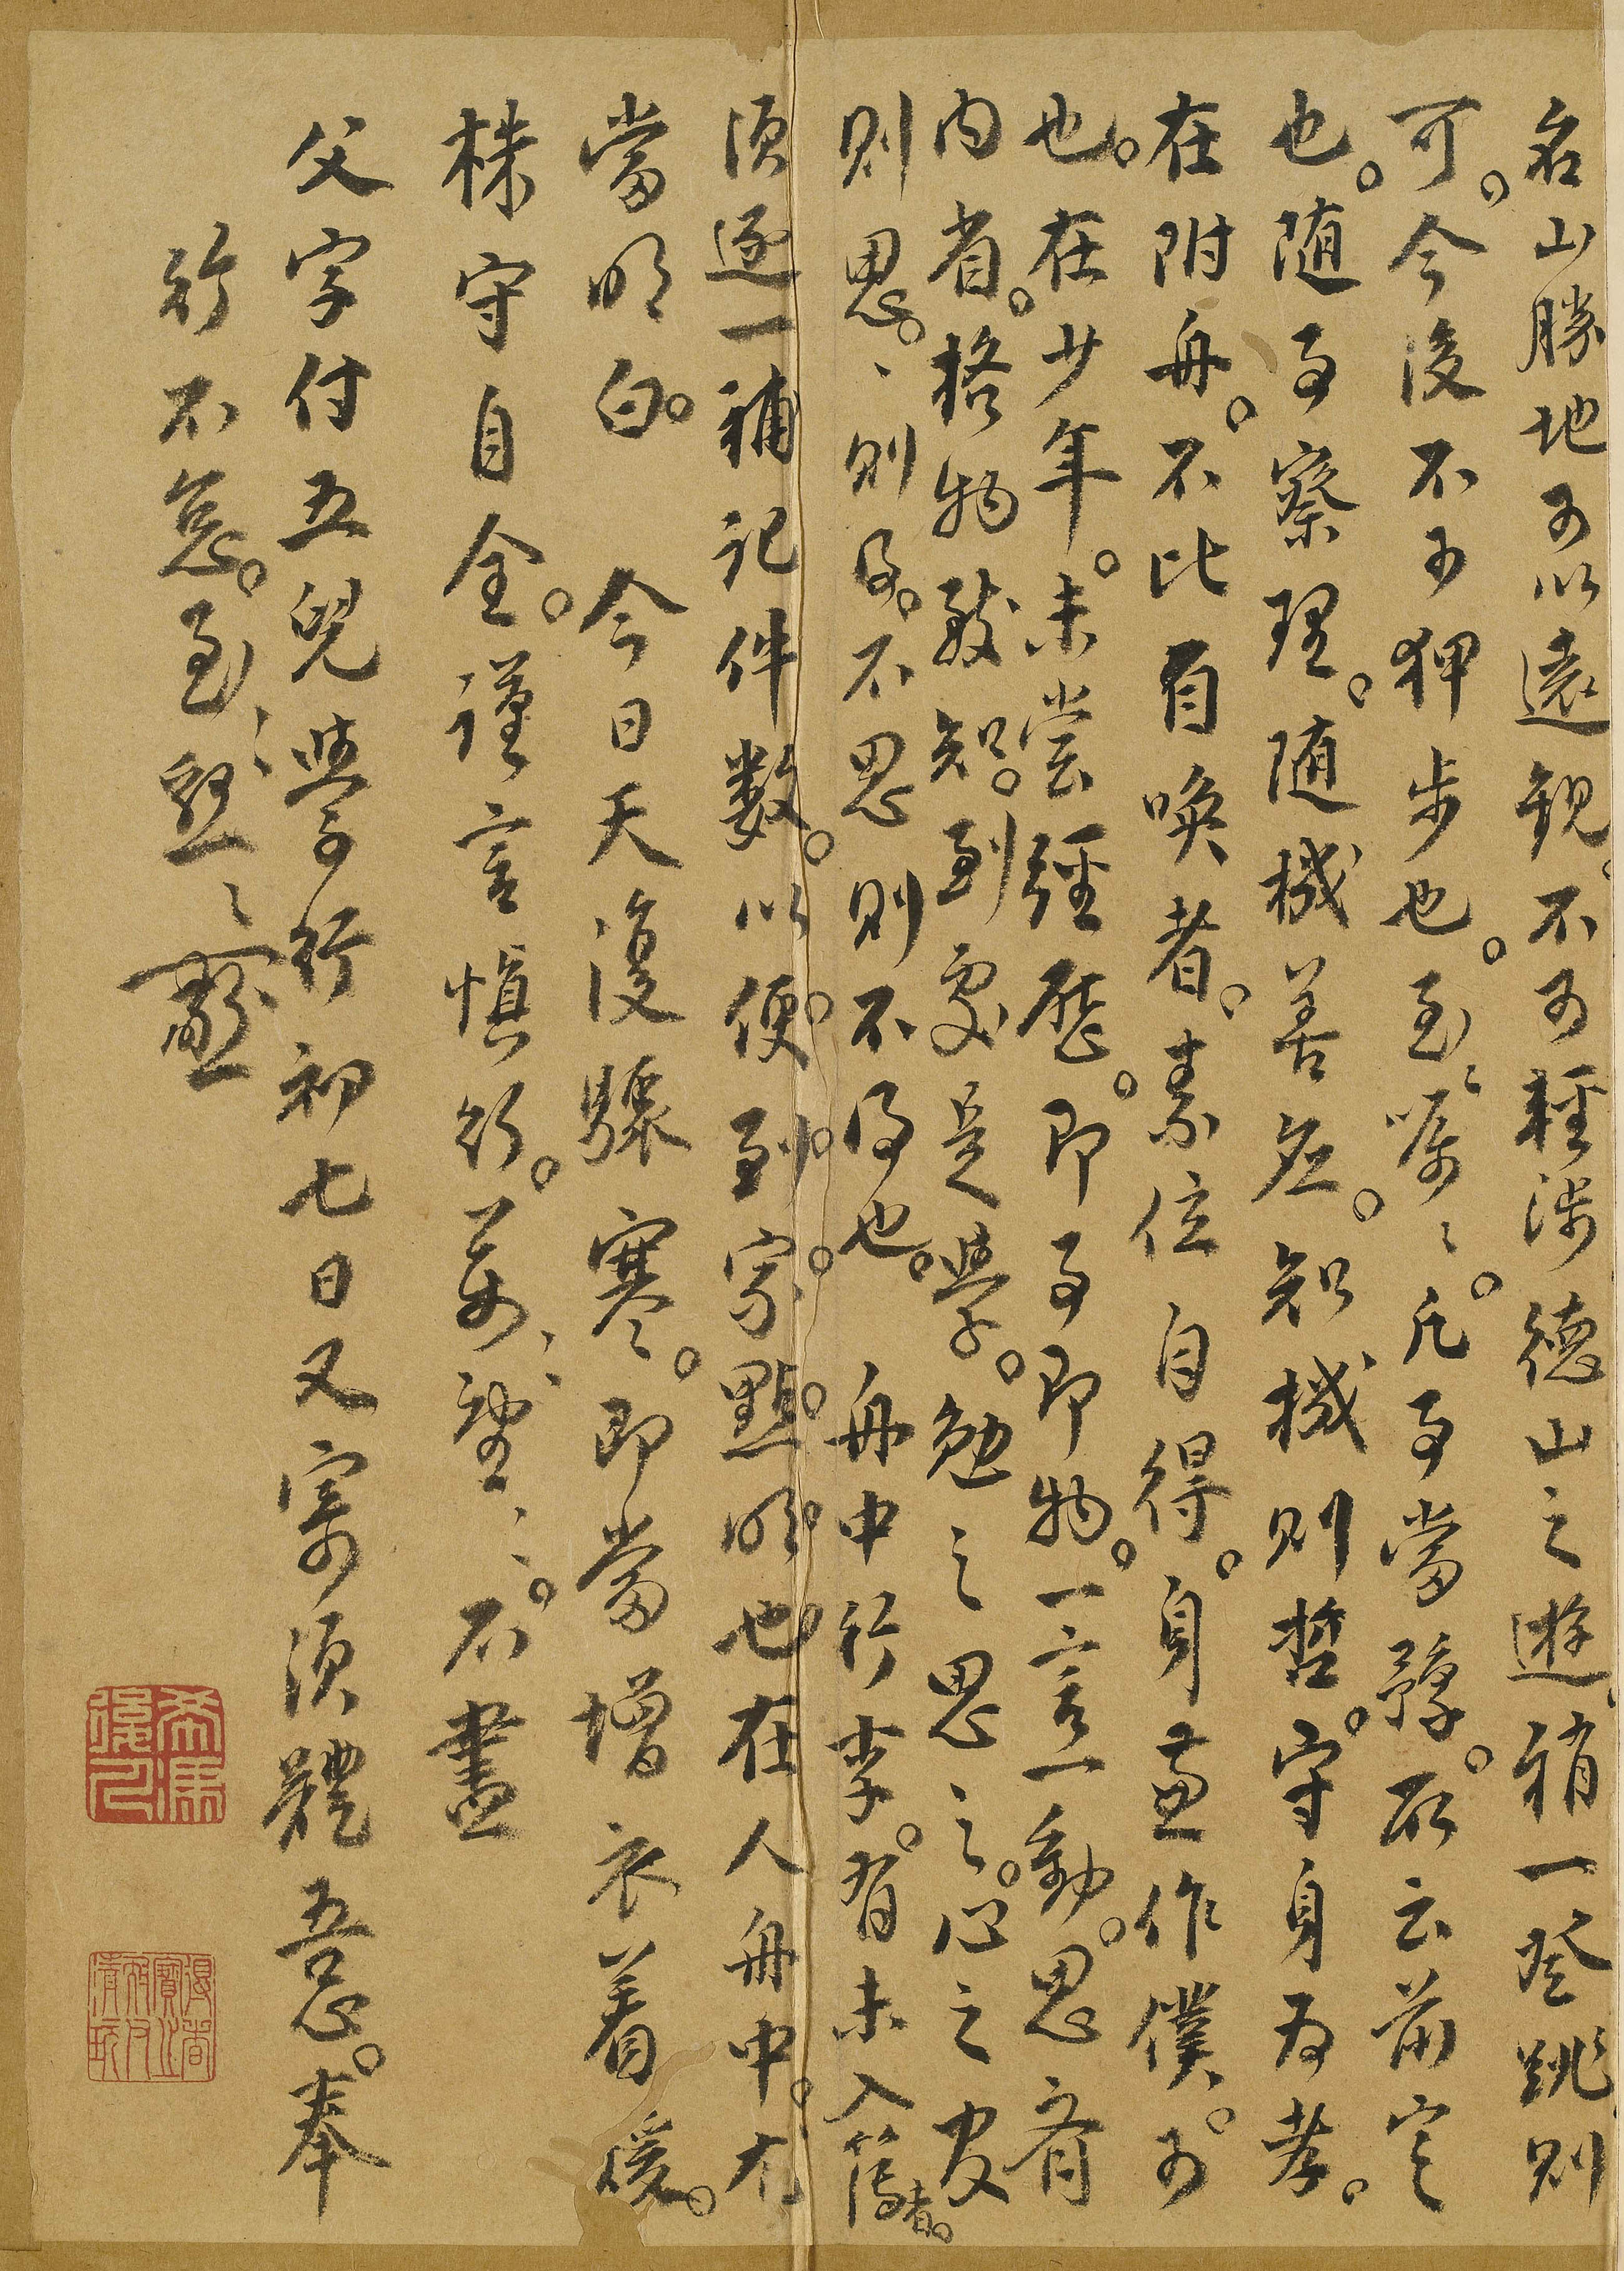 名山勝地可以遠觀。不可輕涉德山之遊。稍一登跳。則
可。今後不可狎步也。至〻囑〻。凡事當豫。所云前定
也。随事察理。随機善應。知機則哲。守身為孝。
在附舟。不比自喚者。素位自得。身兼作僕。可
也。在少年。未嘗經歷。即事即物。一言一動。思齊
内省。格物致知。到處是學。勉之思之。心之官
則思。、則得。不思則不得也。 舟中行李。有未入簿者。
須逐一補記件數。以便到家點明也在人舟中。尤
當明白。 今日天復驟寒。即當增衣着暖。
株守自全。謹言慎行。萬〻望〻。不盡
父字付五兒學行初七日又寄須體吾心。奉
行不怠。至〻懇〻